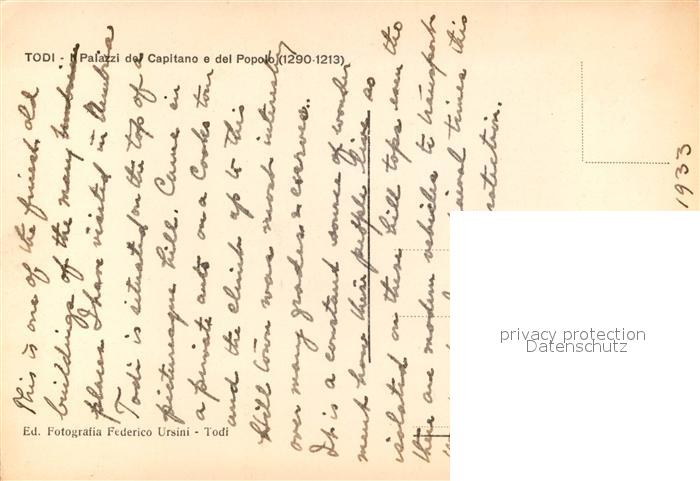 TODI - I Palazzi del Capitano e del Popolo (1290-1213)
This is one of the finest old
buildings of the many
places I have visited in Umbria
Todi is situated on the top of a
picturesque hill. Came in
a private auto on a Cooks tour
and the climb up to this
hill town was most interesting
over many grades & curves.
It is a constant source of wonder
ment how their people live so
isolated on these hill tops even tho
there are modern vehicles to transport
several times this
1933
Ed. Fotografia Federico Ursini - Todi
privacy protection
Datenschutz